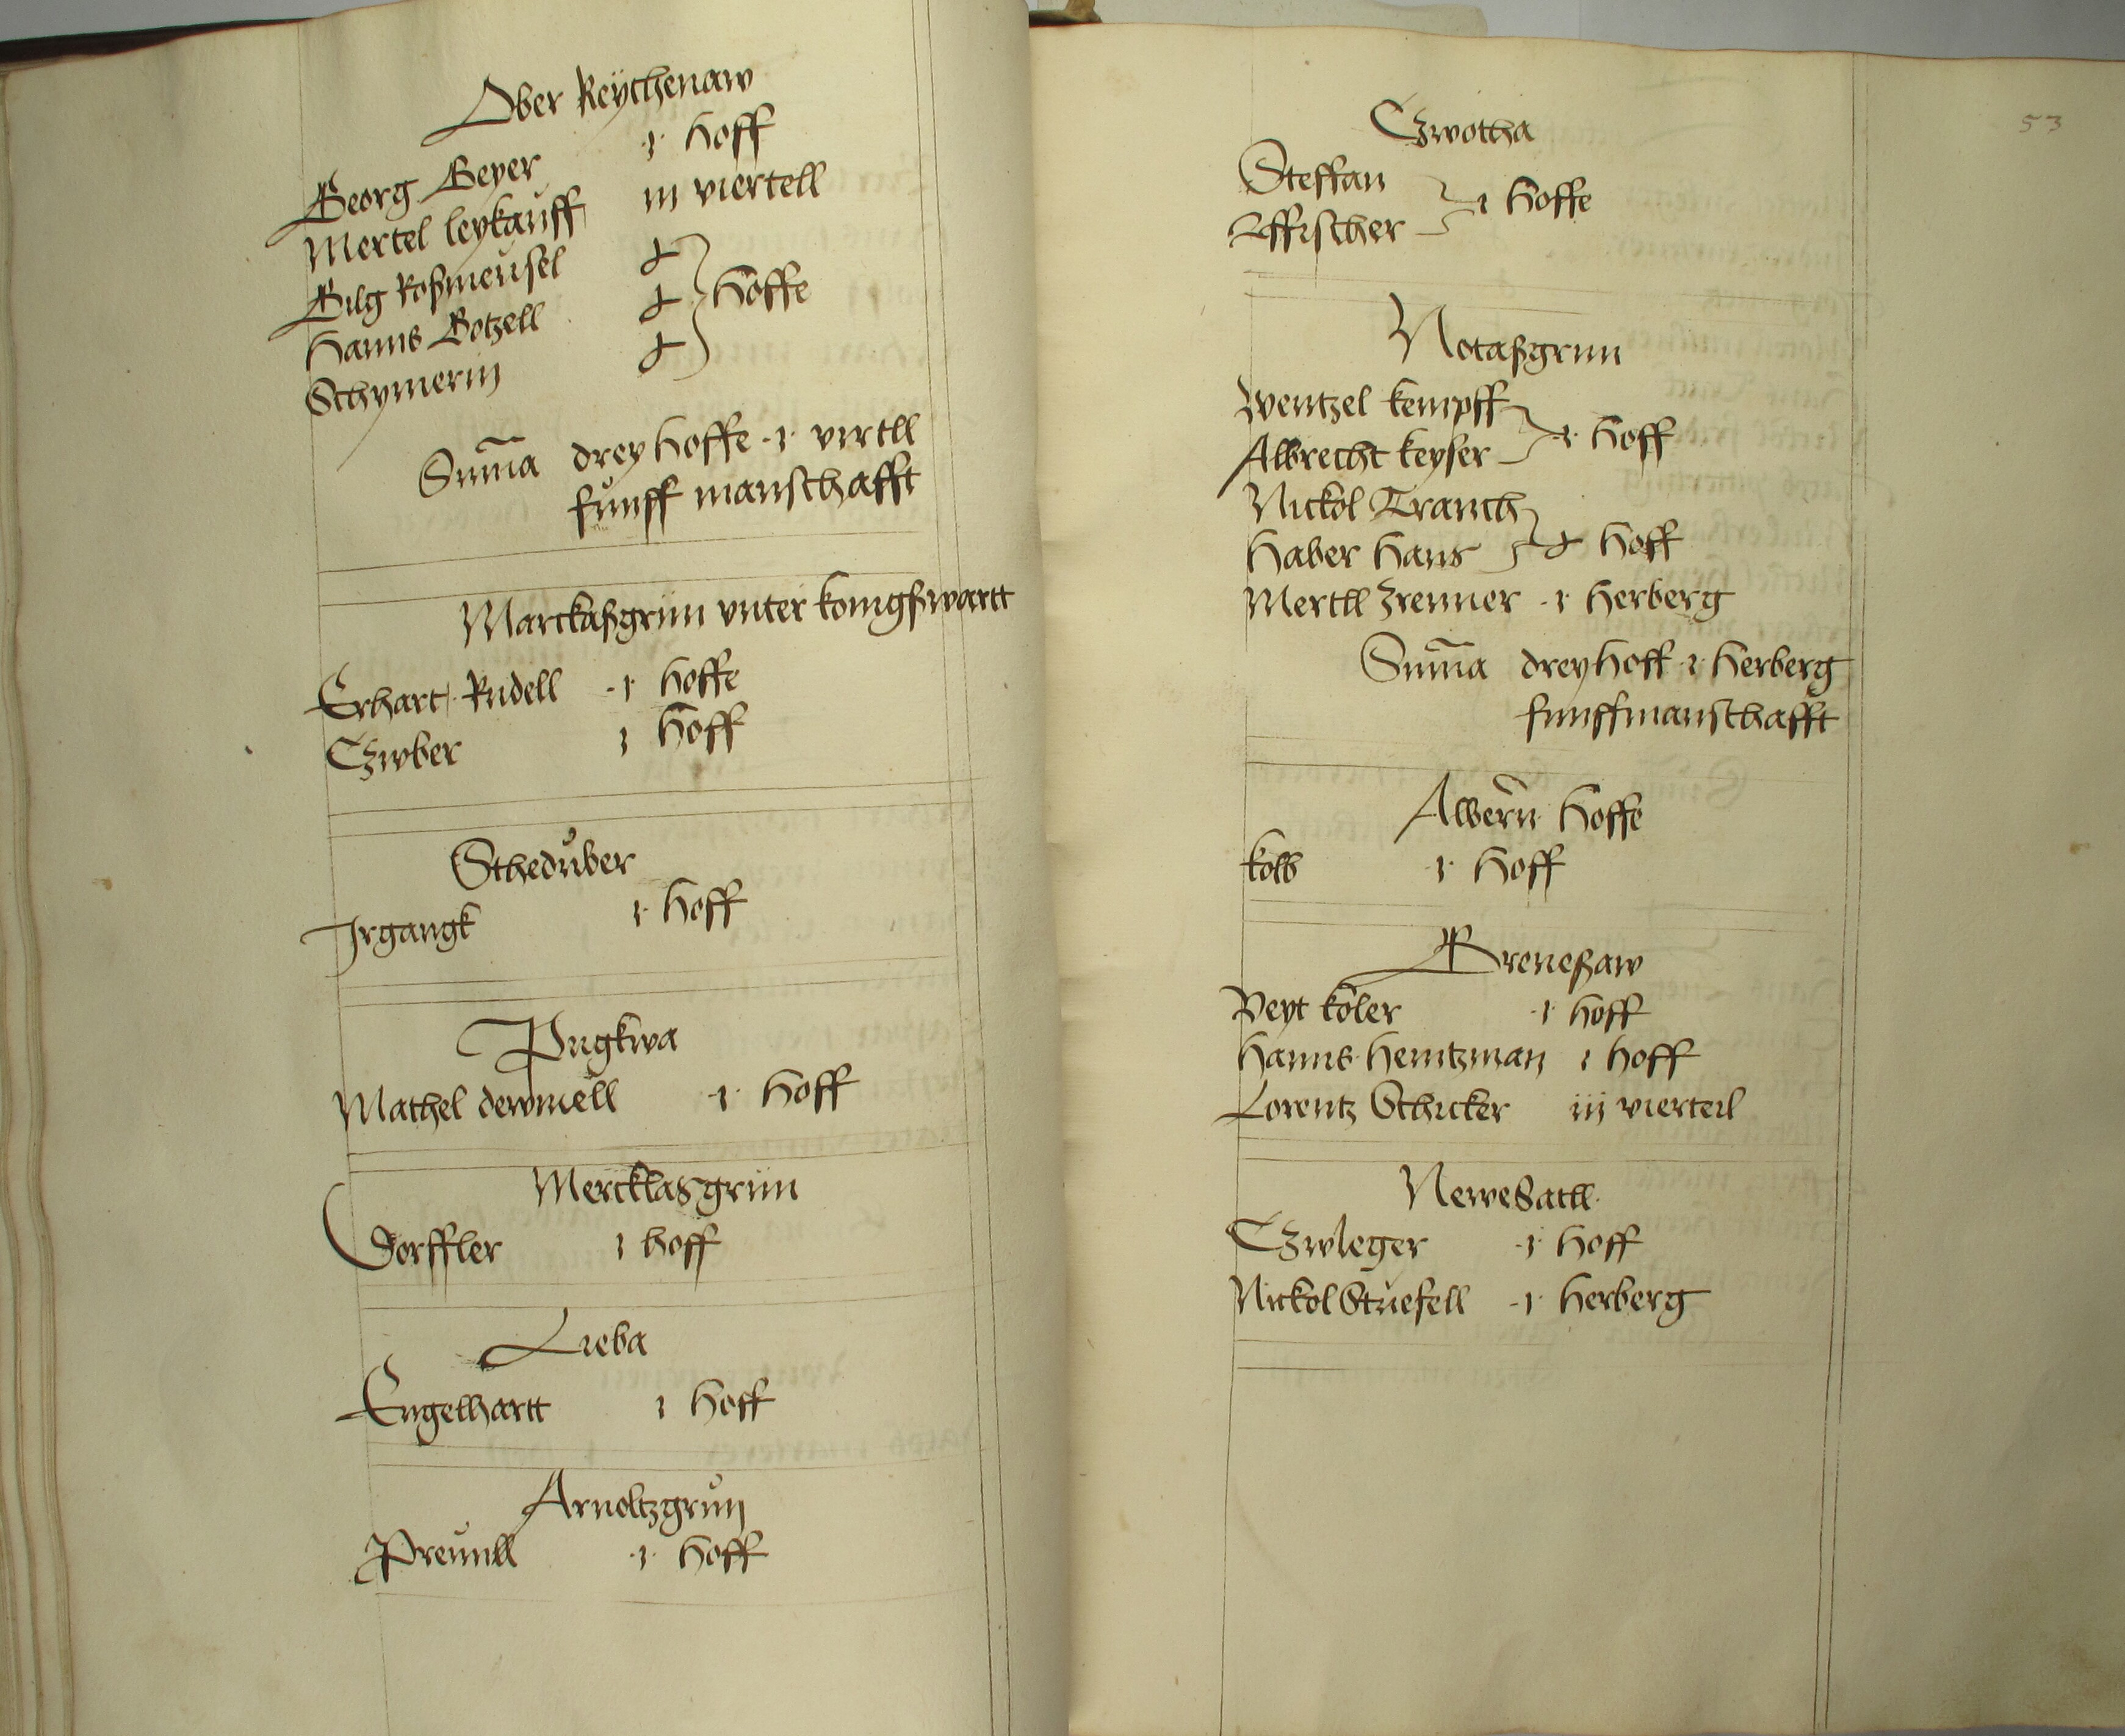 Ober Reÿchenaw
Georg Beyer ·1· hoff
Mertel leykauff iij viertell
Gilg Roßmeusel
Hanns Gotzell hoffe
Schymerin
Suma drey hoffe ·1· virtll
funff manschafft
Marckaßgrun vnter konigßwartt
Erhart Rudell ·1· hoffe
Czwber 1 hoff
Scheduber
Irgangk 1· hoff
Pugkwa
Mathel dewmell ·1· hoff
Mercklasgrun
Dorffler 1 hoff
Lieba
Engelhartt 1 hoff
Arnoltzgrun
Preunll ·1· hoff
53
Czwotha
Steffan
Effischer 1 hoffe
Notaßgrun
Wentzel kempff
Albrecht keyser ·1· hoff
Nickol Tranch
Haber Hans hoff
Mertll Zrenner ·1· herberg
Suma drey hoff ·1· herberg
funff manschafft
Albern hoffe
kolb ·1· hoff
Greneßaw
Veyt koler ·1· hoff
Hanns heintzman 1 hoff
Lorentz Schicker iij vierteil
Newesatll
Czwleger ·1· hoff
Nickol Stuefell ·1· herberg